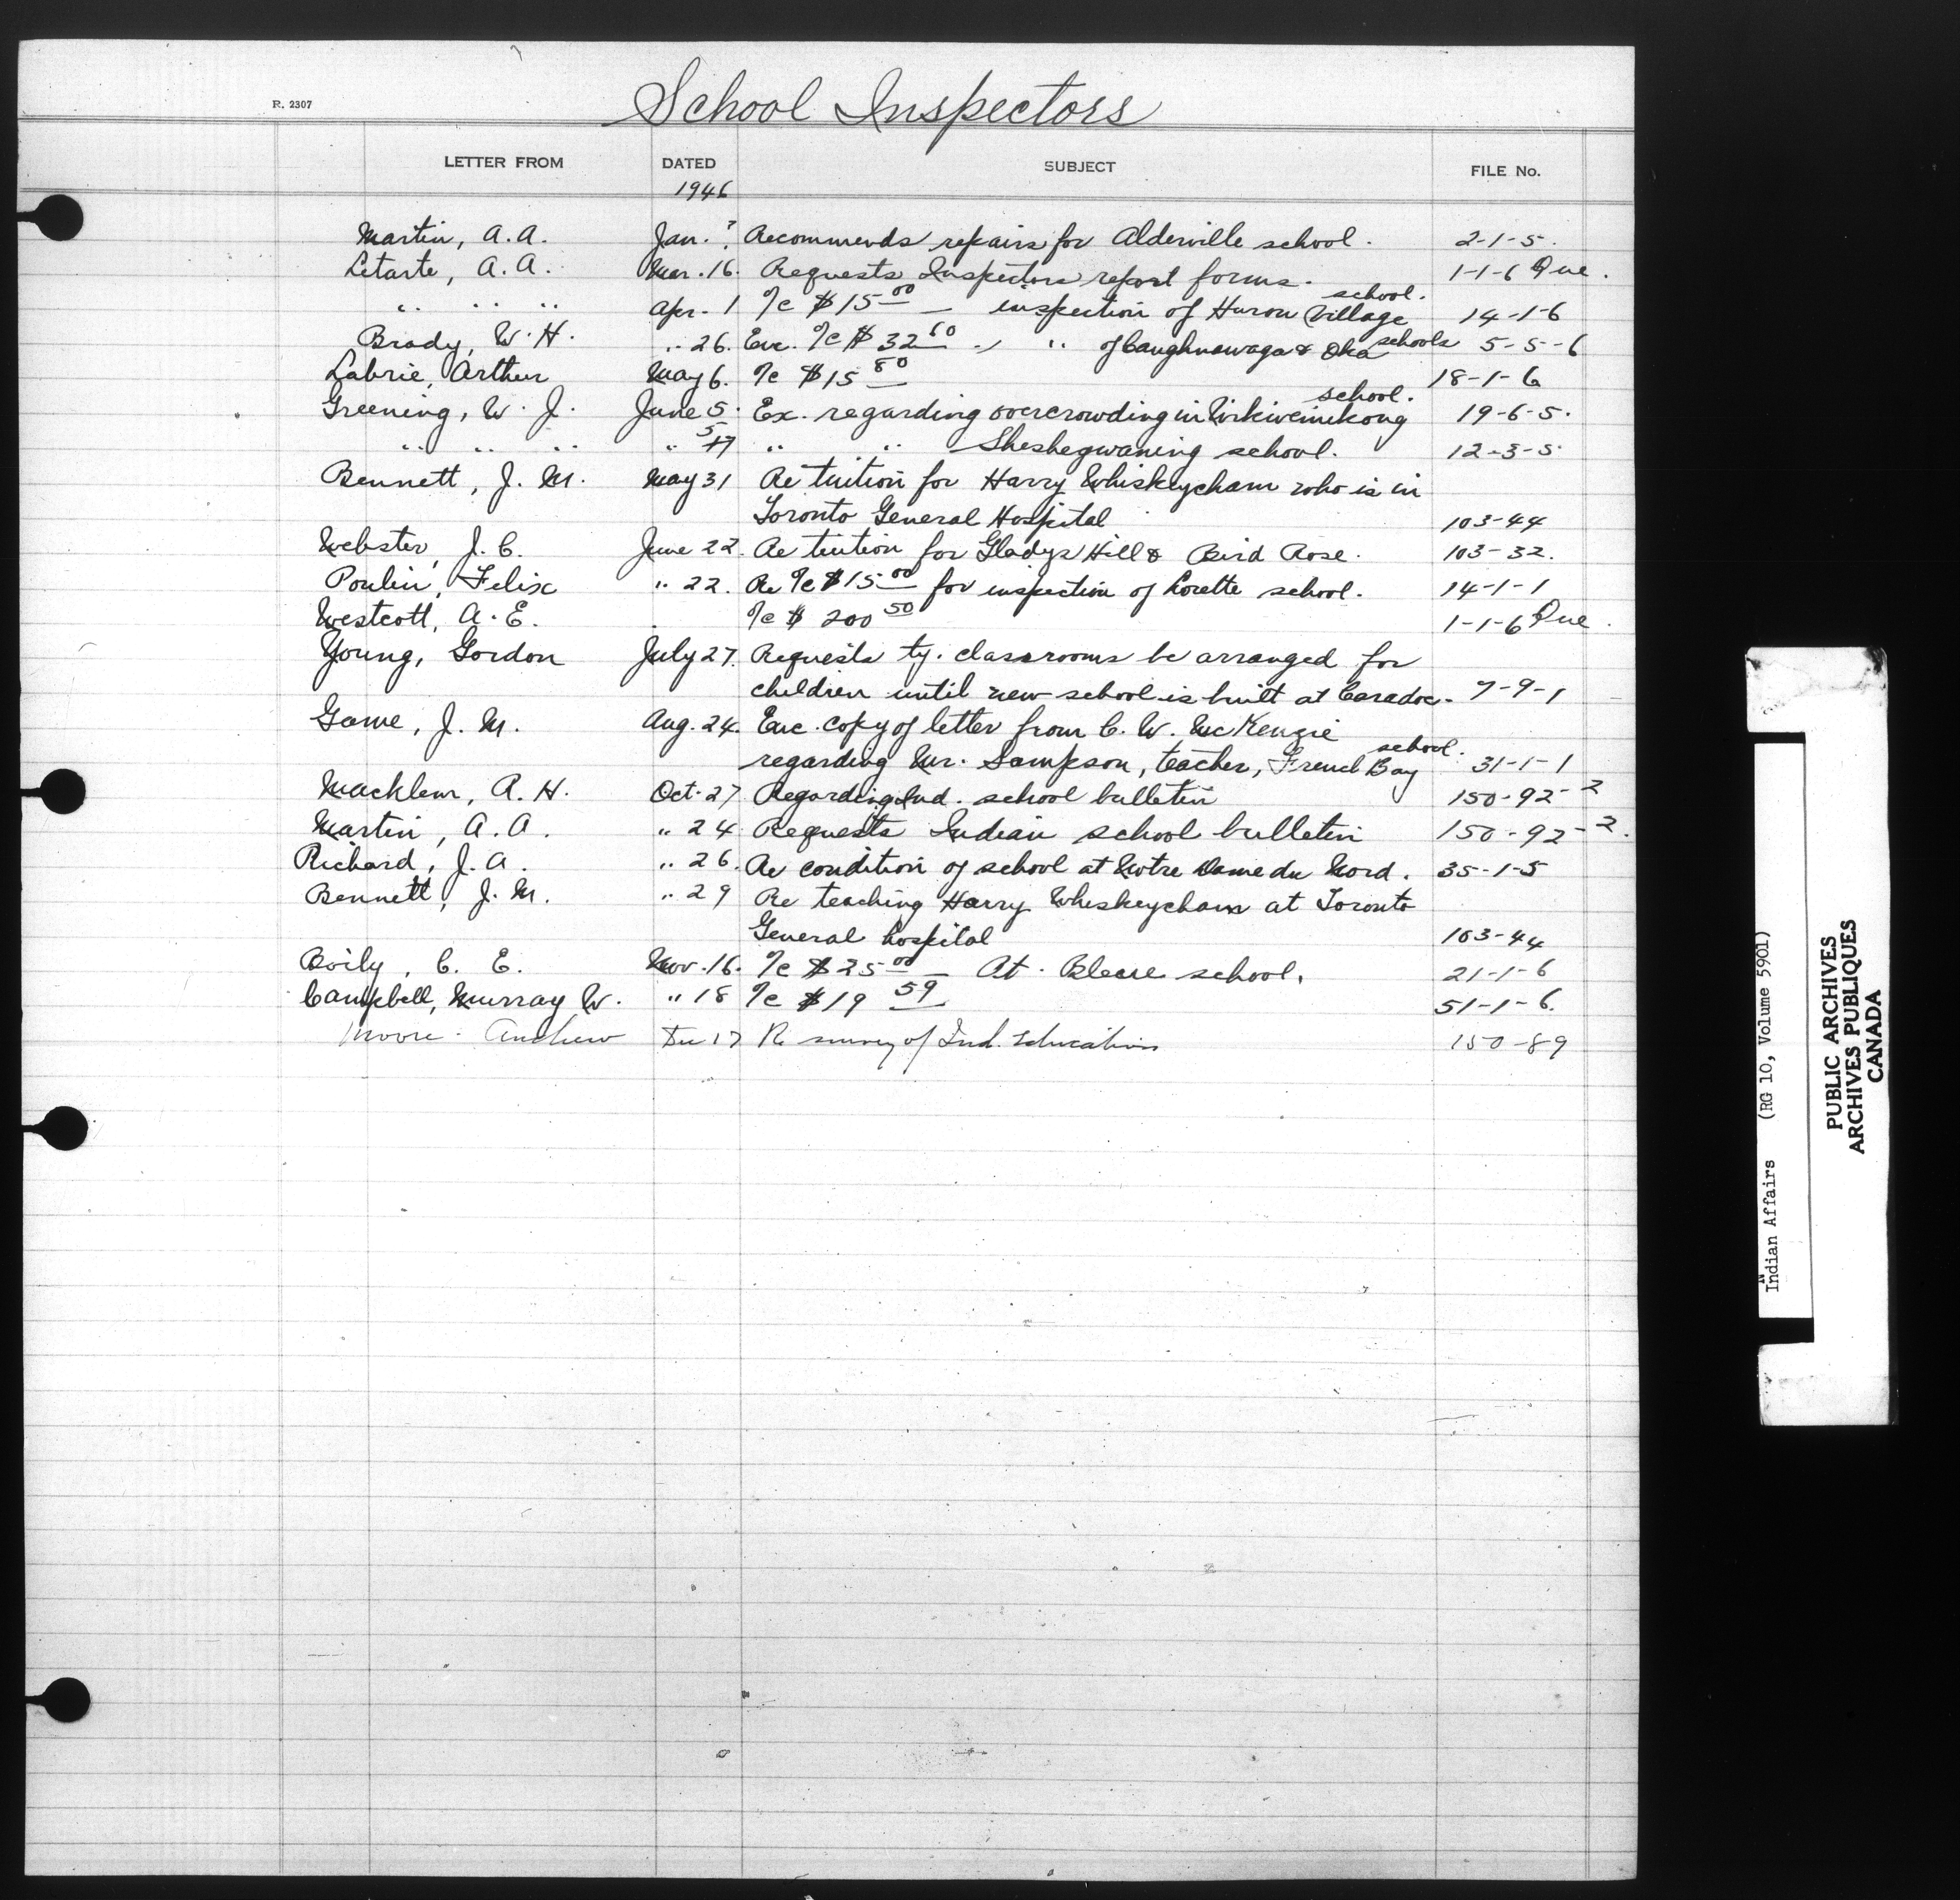 School Inspectors
R. 2307
LETTER FROM DATED SUBJECT FILE No.
1946
Martin, A.A. Jan. ? Recommends repairs for Alderville school. 2-1-5.
Letarte, A.A. Mar. 16. Requests Inspectors report forms. 1-1-6 Que.
" " " Apr. 1 %c $15 00 — inspection of Huron Village school. 14-1-6
Brady, W.H. " 26. Enc. %c $32 60 " " of Caughnawaga & Oka schools 5-5-6
Labrie, Arthur May 6. %c $15 80 18-1-6
Greening, W.J. June 5. Ex. regarding overcrowding in Wikiwemikong school. 19-6-5.
" " " " 5 17 " " Sheshegwaning school. 12-3-5
Bennett, J.M. May 31 Re tuition for Harry Whiskeycham who is in
Toronto General Hospital 103-44
Webster, J.C. June 22. Re tiution for Gladys Hill & Bird Rose. 103-32.
Poulin, Felix " 22. Re %c $15 00 for inspection of Lorette school. 14-1-1
Westcott, A.E. %c $ 200 50 1-1-6 Que.
Young, Gordon July 27. Requests ty. classrooms be arranged for
children until new school is built at Caradoc. 7-9-1
Game, J.M. Aug. 24. Enc. copy of letter from C.W. McKenzie
regarding Mr. Sampson, teacher, French Bay school. 31-1-1
Macklem, A.H. Oct. 27 Regarding Ind. school bulletin 150-92-2
Martin, A.A. " 24 Requests Indian school bulletin 150-92-2.
Richard, J.A. " 26. Re condition of school at Notre Dame du Nord. 35-1-5
Bennett, J.M. " 29 Re teaching Harry Whiskeycham at Toronto
General hospital 103-44
Boily, C.E. Nov. 16. %c $25 00 — At. Bleue school. 21-1-6
Campbell, Murray W. " 18 %c $19 59 51-1-6.
Moore - Andrew Dec 17 Re survey of Ind. Education 150-89
Indian Affairs (RG 10, Volume 5901)
PUBLIC ARCHIVES
ARCHIVES PUBLIQUES
CANADA